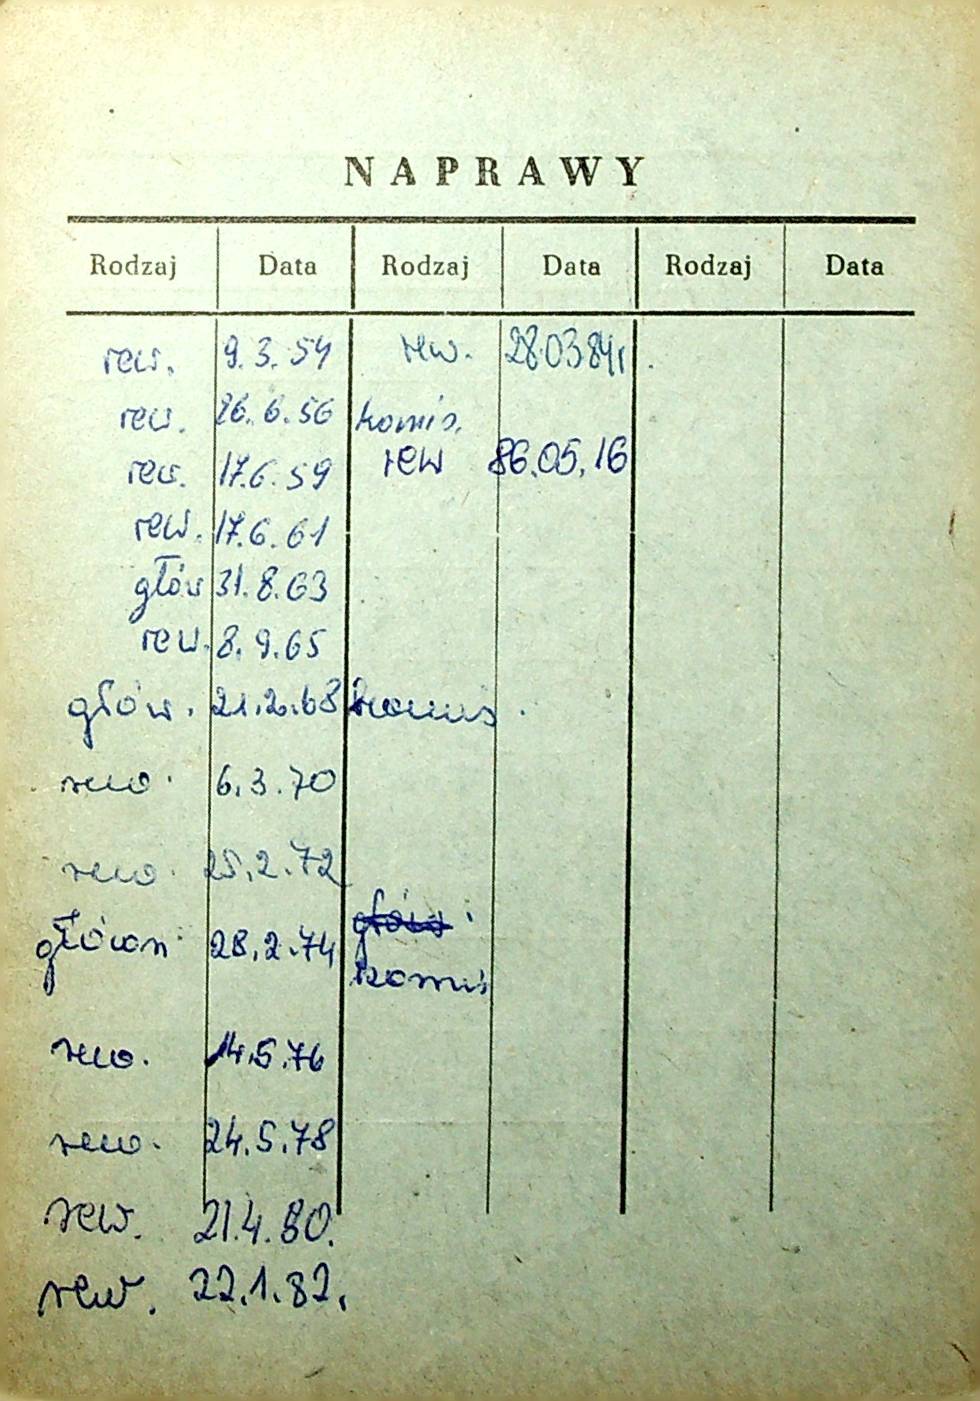 NAPRAWY
Rodzaj Data Rodzaj Data Rodzaj Data
rew. 9.3.54 rew. 28.03.84r.
rew. 26.6.56 komis.
rew. 17.6.59 rew 86.05.16
rew. 17.6.61
głów 31.8.63
rew. 8.9.65
głów. 21.2.68 komis.
rew. 6.3.70
rew. 25.2.72
główn. 28.2.74 głów.
komis
rew. 14.5.76
rew. 24.5.78
rew. 21.4.80.
rew. 22.1.82.